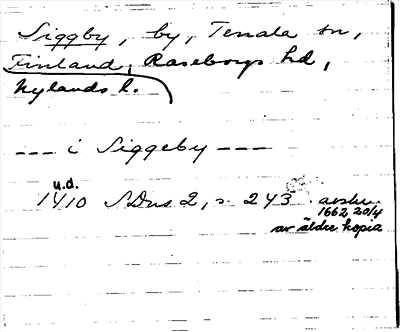 Siggby, by, Tenala sn,
Finland, Raseborgs hd,
Nylands l.
--- i Siggeby ---
u.d.
1410 SDns 2, s. 243 avskr.
1662 20/4
av äldre kopia